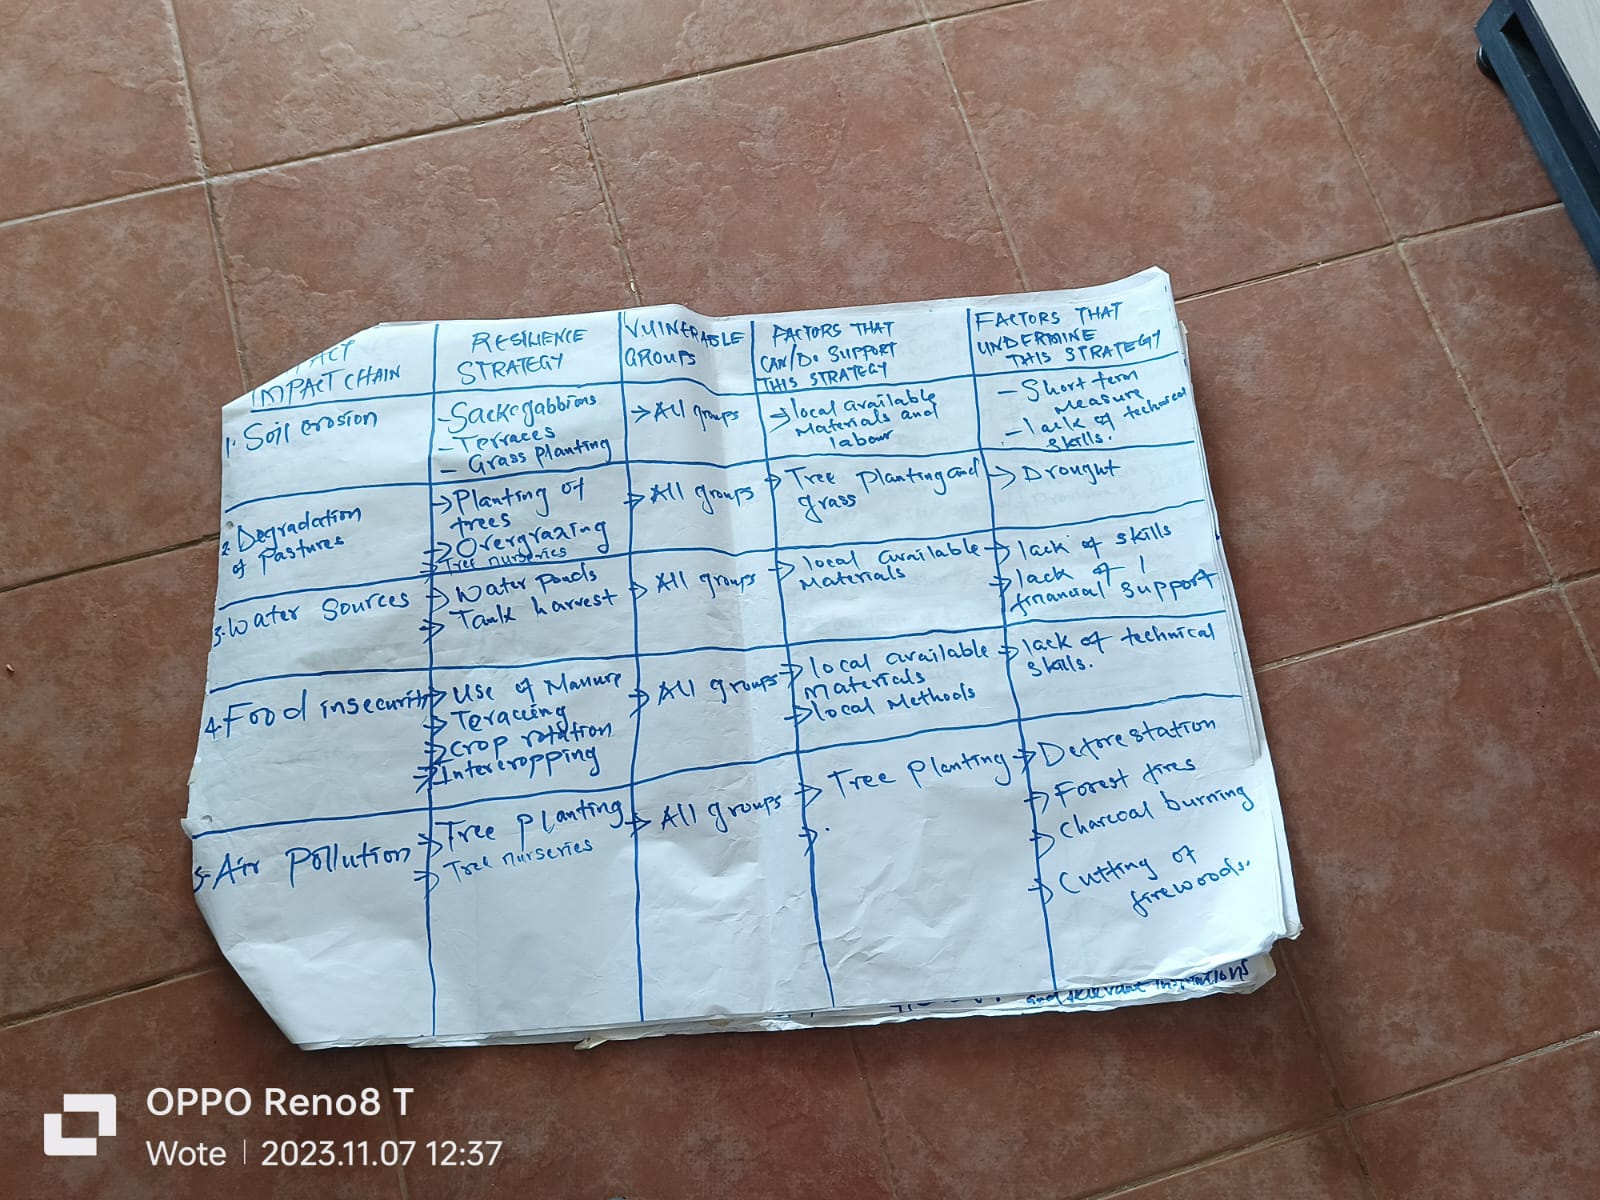 IMPACT CHAIN
RESILIENCE
STRATEGY
VULNERABLE
GROUPS
FACTORS THAT
CAN/Do SUPPORT
THIS STRATEGY
FACTORS THAT
UNDERMINE
THIS STRATEGY
1. Soil erosion
- Sacke gabbions
- Terraces
- Grass planting
→ All groups
→ local available
Materials and
labour
- Short term
Measure
- lack of technical
skills.
2. Degradation
of Pastures
→ Planting of
trees
→ Overgrazing
→ Tree nurseries
→ All groups
→ Tree planting and
grass
→ Drought
3. Water Sources
→ Water ponds
→ Tank harvest
→ All groups
→ local available
Materials
→ lack of skills
→ lack of
financial support
4. Food insecurity
→ Use of Manure
→ Teraccing
→ Crop rotation
→ Intercropping
→ All groups
→ local available
Materials
→ local Methods
→ lack of technical
skills.
5. Air Pollution
→ Tree planting
→ Tree nurseries
→ All groups
→ Tree planting
→ .
→ Deforestation
→ Forest fires
→ Charcoal burning
→ Cutting of
firewoods.
and relevant institutions
OPPO Reno8 T
Wote | 2023.11.07 12:37